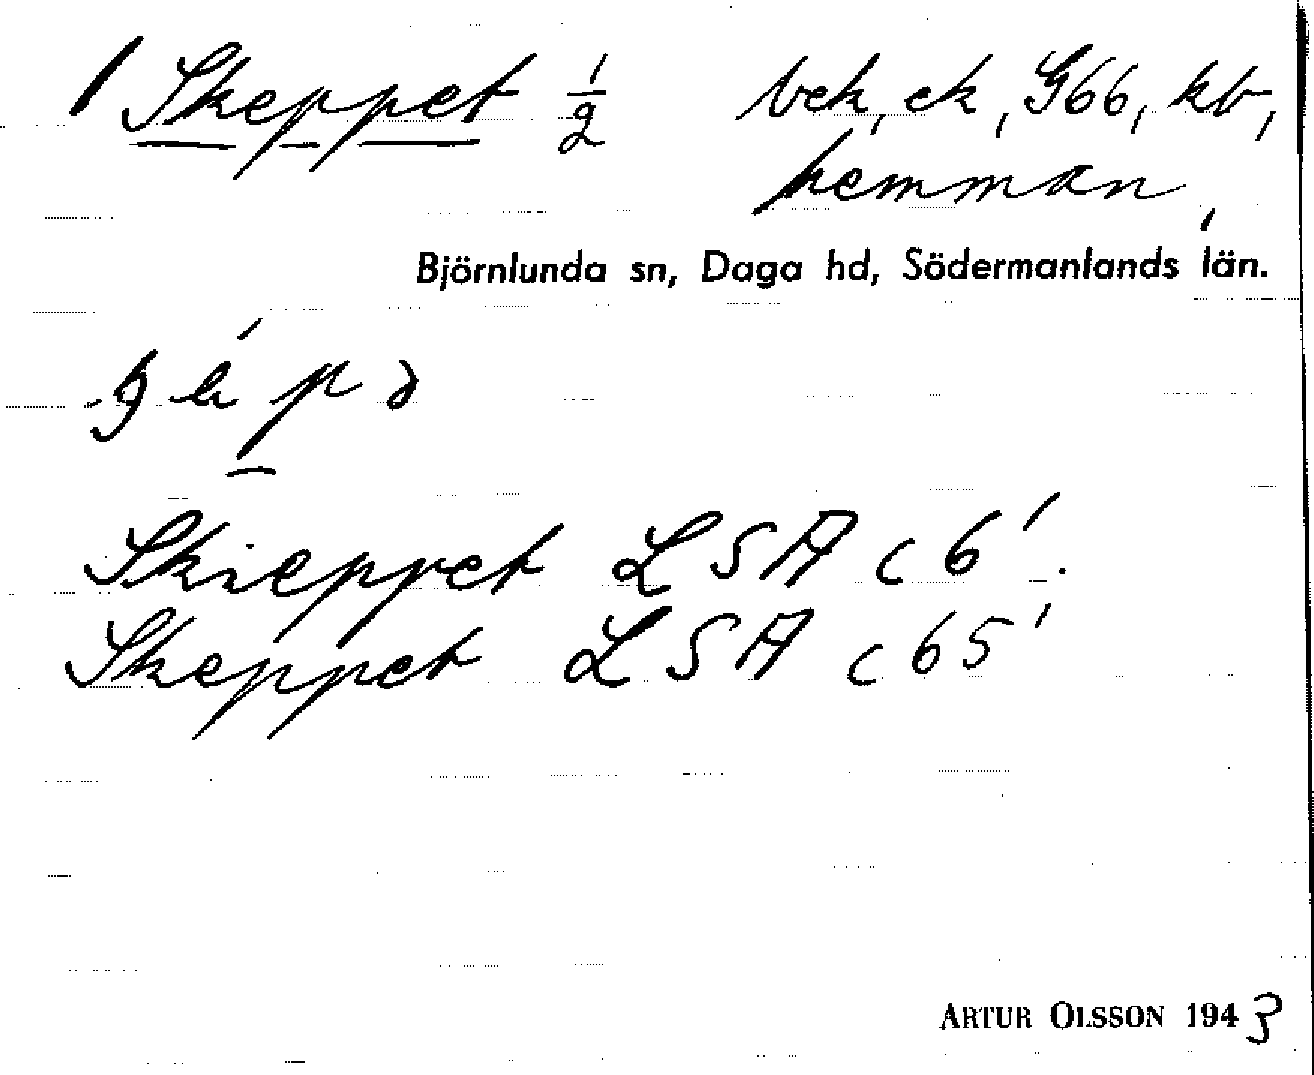 / Skeppet 1/2 bek, ek, G66, kb,
hemman,
Björnlunda sn, Daga hd, Södermanlands län.
Skieppet LSA c 6'.
Skeppet LSA c 65'
ARTUR OLSSON 1943